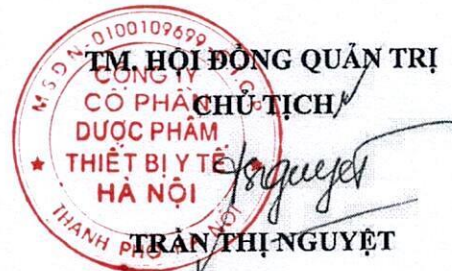 TM. HỘI ĐỒNG QUẢN TRỊ
CHỦ TỊCH
M.S.D.N-0100109699
CÔNG TY
CỔ PHẦN
DƯỢC PHẨM
THIẾT BỊ Y TẾ
HÀ NỘI
THÀNH PHỐ HÀ NỘI
Nguyet
TRẦN THỊ NGUYỆT